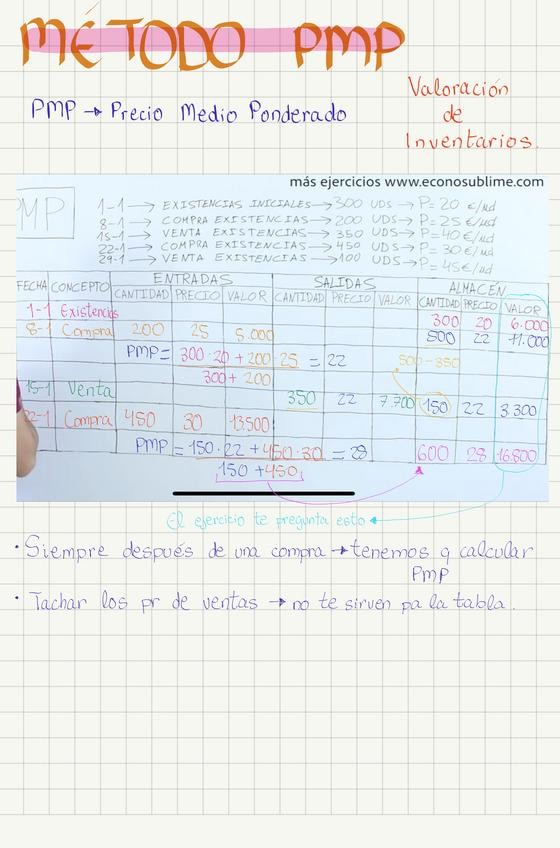 MÉTODO PMP
PMP → Precio Medio Ponderado
Valoración
de
Inventarios.
más ejercicios www.econosublime.com
PMP
1-1 → EXISTENCIAS INICIALES → 300 UDS → P= 20 €/ud
8-1 → COMPRA EXISTENCIAS → 200 UDS → P= 25 €/ud
15-1 → VENTA EXISTENCIAS → 350 UDS → P= 40 €/ud
22-1 → COMPRA EXISTENCIAS → 450 UDS → P= 30 €/ud
29-1 → VENTA EXISTENCIAS → 100 UDS → P= 45 €/ud
ENTRADAS SALIDAS ALMACÉN
FECHA CONCEPTO CANTIDAD PRECIO VALOR CANTIDAD PRECIO VALOR CANTIDAD PRECIO VALOR
1-1 Existencias 300 20 6.000
8-1 Compra 200 25 5.000 500 22 11.000
PMP= 300·20 + 200·25 = 22 500-350
300 + 200
15-1 Venta 350 22 7.700 150 22 3.300
22-1 Compra 450 30 13.500
PMP = 150·22 + 450·30 = 28 600 28 16.800
150 + 450
El ejercicio te pregunta esto
• Siempre después de una compra → tenemos q calcular
PMP
• Tachar los pr de ventas → no te sirven pa la tabla.